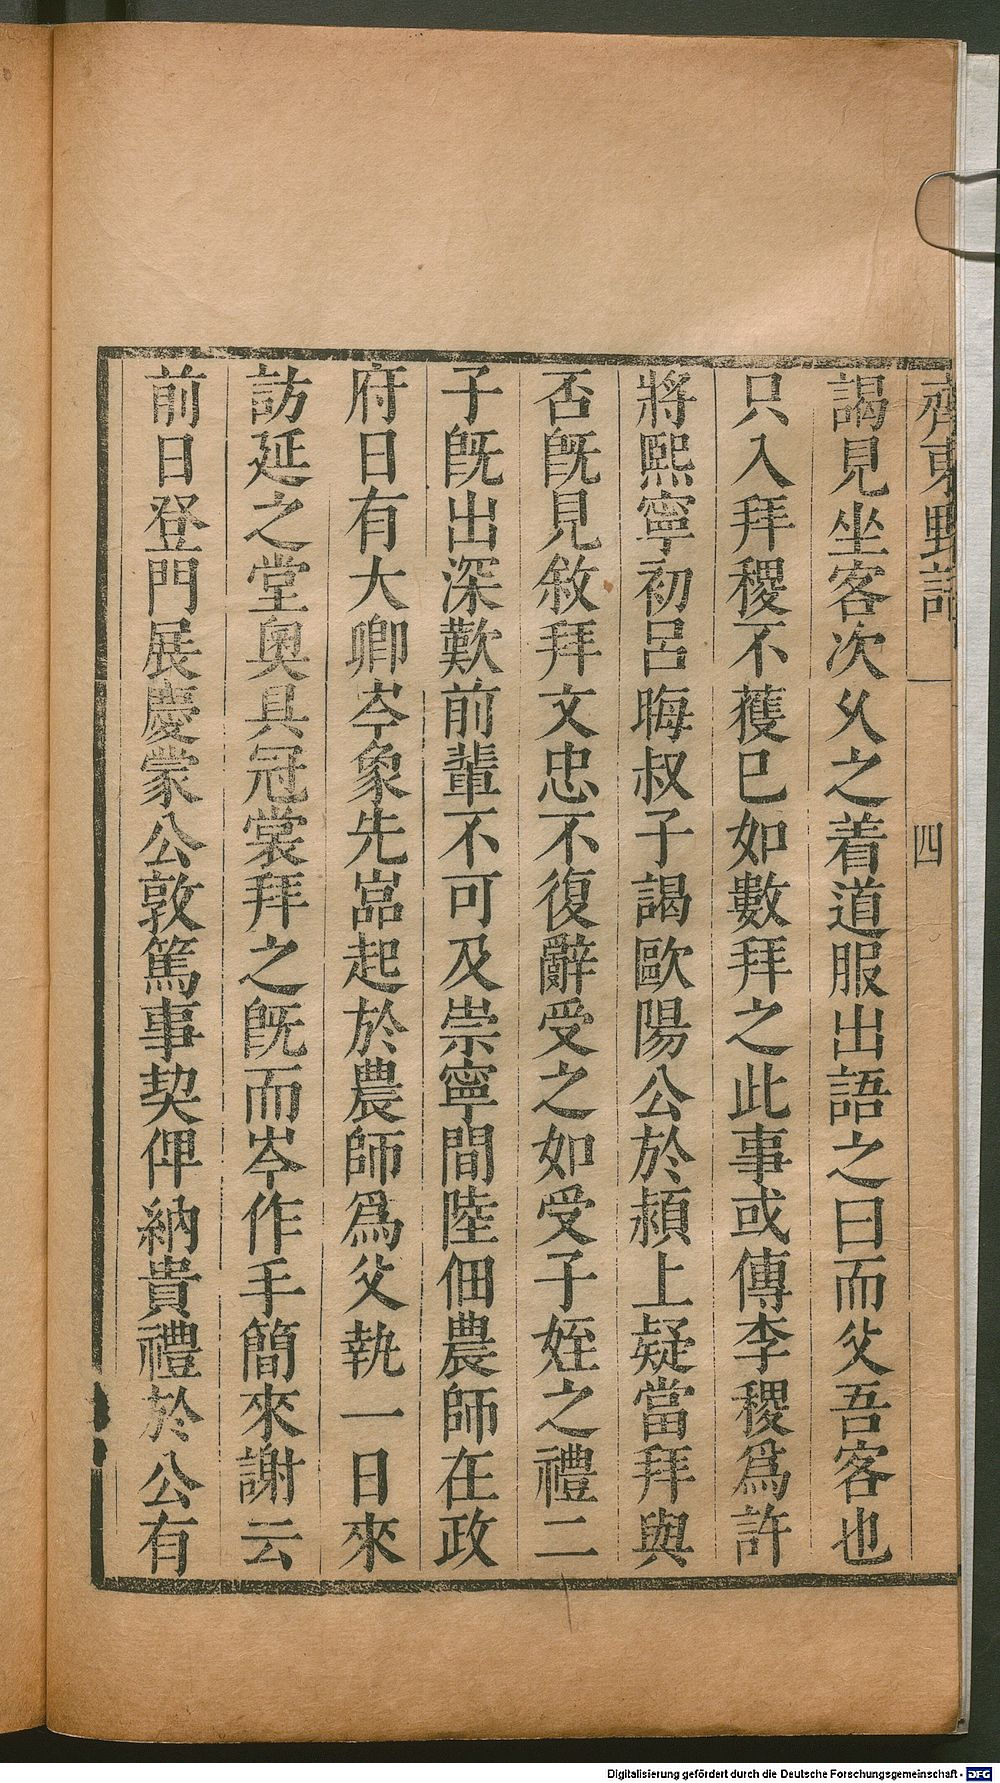 齊東野語
四
謁見坐客次乆之着道服出語之曰而父吾客也
只入拜稷不獲已如數拜之此事或傳李稷爲許
將熙寧初呂晦叔子謁歐陽公於潁上疑當拜與
否旣見敘拜文忠不復辭受之如受子姪之禮二
子旣出深歎前輩不可及崇寧間陸佃農師在政
府日有大卿岑象先嵓起於農師爲父執一日來
訪延之堂奧具冠裳拜之旣而岑作手簡來謝云
前日登門展慶蒙公敦篤事契俾納貴禮於公有
Digitalisierung gefördert durch die Deutsche Forschungsgemeinschaft - DFG